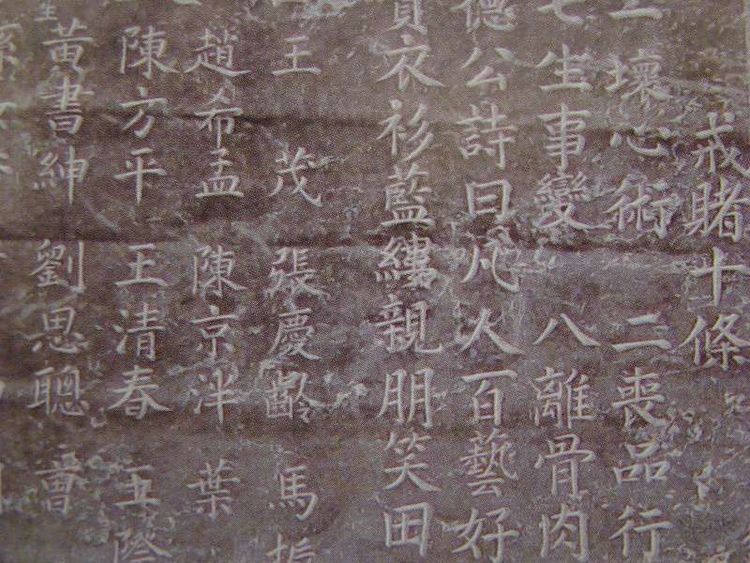 戒賭十條
一壞心術 二喪品行
七生事變 八離骨肉
德公詩曰凡人百藝好
衣衫藍縷親朋笑田
王 茂 張慶齡 馬
趙希孟 陳京泮 葉
陳方平 王清春 王
黃書紳 劉思聰 曾